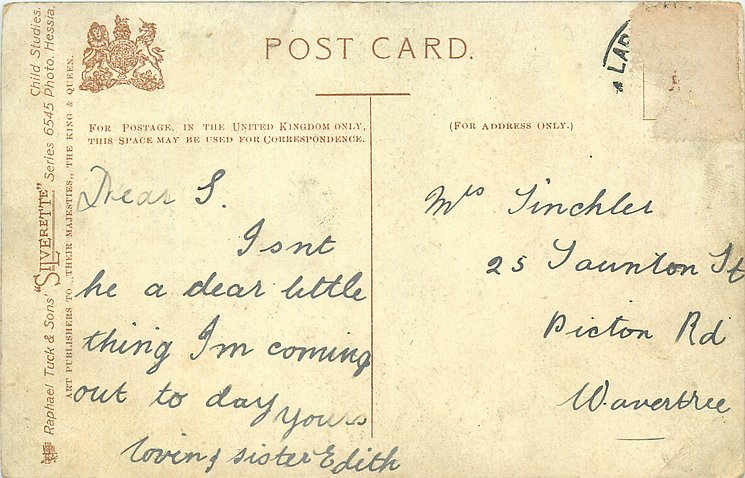 POST CARD.
FOR POSTAGE, IN THE UNITED KINGDOM ONLY,
THIS SPACE MAY BE USED FOR CORRESPONDENCE.
(FOR ADDRESS ONLY.)
Raphael Tuck & Sons' "SILVERETTE" Series 6545 Photo, Hessia.
Child Studies.
ART PUBLISHERS TO THEIR MAJESTIES, THE KING & QUEEN.
LAR
Dear S.
Isnt
he a dear little
thing Im coming
out to day yours
loving sister Edith
Mrs Sinchler
25 Taunton St
Picton Rd
Wavertree